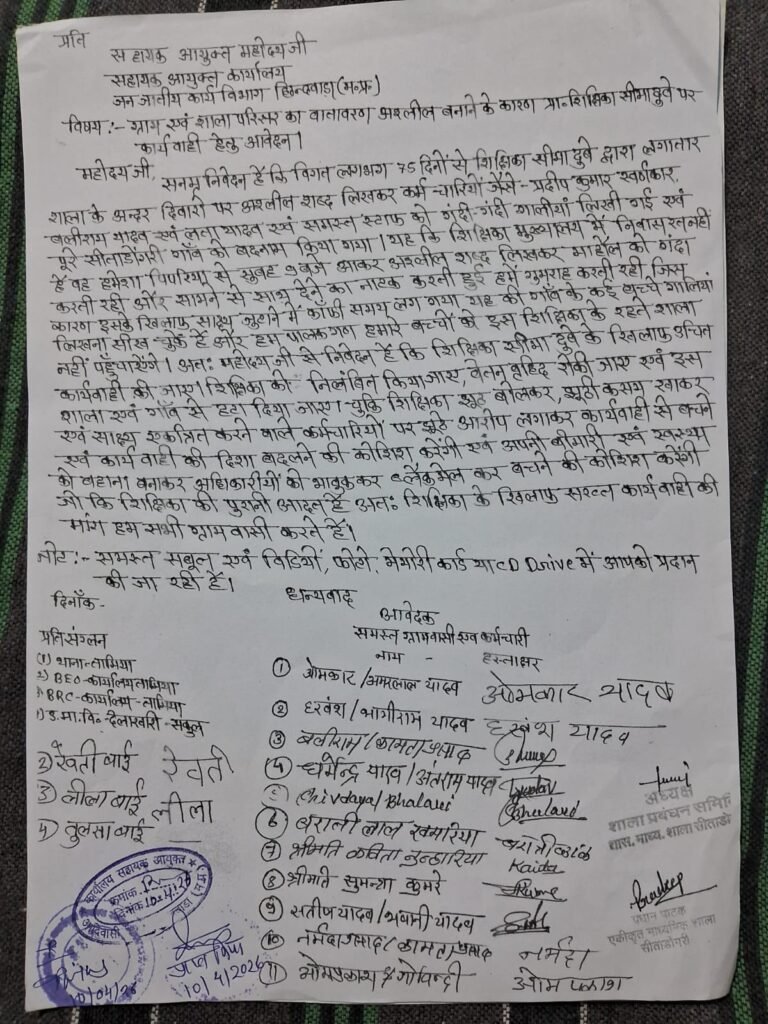 प्रति
सहायक आयुक्त महोदय जी
सहायक आयुक्त कार्यालय
जन जातीय कार्य विभाग छिन्दवाड़ा (म.प्र.)
विषय :- ग्राम एवं शाला परिसर का वातावरण अश्लील बनाने के कारण प्रा. शिक्षिका सीमा दुबे पर
कार्यवाही हेतु आवेदन।
महोदय जी,
सनम्र निवेदन है कि विगत लगभग 75 दिनों से शिक्षिका सीमा दुबे द्वारा लगातार
शाला के अन्दर दिवारो पर अश्लील शब्द लिखकर कर्मचारियों जैसे - प्रदीप कुमार स्वर्णकार,
बलीराम यादव एवं लता यादव एवं समस्त स्टाफ को गंदी-गंदी गालीयां लिखी गई एवं
पूरे सीताडोंगरी गाँव को बदनाम किया गया। यह कि शिक्षिका मुख्यालय में निवासरत नहीं
है वह हमेशा पिपरिया से सुबह 9 बजे आकर अश्लील शब्द लिखकर माहोल को गंदा
करती रही और सामने से साथ देने का नाटक करती हुई हमें गुमराह करती रही, जिस
कारण इसके खिलाफ साक्ष्य जुटाने में काफी समय लग गया यह की गाँव के कई बच्चे गालियां
लिखना सीख चुके है और हम पालकगण हमारे बच्चों को इस शिक्षिका के रहते शाला
नहीं पहुँचायेंगे। अतः महोदय जी से निवेदन है कि शिक्षिका सीमा दुबे के खिलाफ उचित
कार्यवाही की जाए। शिक्षिका को निलंबित किया जाए, वेतन वृद्दि रोकी जाए एवं इस
शाला एवं गाँव से हटा दिया जाए। चुकि शिक्षिका झूठ बोलकर, झूठी कसम खाकर
एवं साक्ष्य एकत्रित करने वाले कर्मचारियों पर झूठे आरोप लगाकर कार्यवाही से बचने
एवं कार्यवाही की दिशा बदलने की कोशिश करेंगी एवं अपनी बीमारी एवं स्वस्थ्या
को बहाना बनाकर अधिकारीयों को भावुककर ब्लैकमेल कर बचने की कोशिश करेंगी
जो कि शिक्षिका की पुरानी आदत है अतः शिक्षिका के खिलाफ सख्त कार्यवाही की
मांग हम सभी ग्रामवासी करते है।
नोट :- समस्त सबूत एवं विडियों, फोटो, मेमोरी कार्ड या CD Drive में आपको प्रदान
की जा रही है।
धन्यवाद
दिनाँक -
आवेदक
समस्त ग्रामवासी एवं कर्मचारी
नाम - हस्ताक्षर
प्रति संलग्न
(1) थाना-तामिया
2) BEO-कार्यालय तामिया
3) BRC-कार्यालय-तामिया
उ.मा.वि. देलाखारी-संकुल
① ओमकार / अमरलाल यादव ओमकार यादव
② हरवंश / भागीराम यादव हरवंश यादव
③ बलीराम / कामता प्रसाद
④ धर्मेन्द्र यादव / अंतराम यादव
⑥ बराती लाल
⑦ श्रीमति कविता
⑧ श्रीमति सुमन्त्रा कुमरे
⑨ सतीष यादव / यादव
⑩ नर्मदा प्रसाद / कामता प्रसाद नर्मदा
⑪ ओमप्रकाश ओम प्रकाश
2) रेवती बाई रेवती
3) लीला बाई लीला
4) तुलसा बाई
अध्यक्ष
शाला प्रबंधन समिति
शास. माध्य. शाला सीताडों
प्रधान पाठक
एकीकृत माध्यमिक शाला
सीताडोंगरी
कार्यालय सहायक आयुक्त
क्रमांक
दिनांक 10.4.26
आदिवासी
10/04/26
10/4/2026